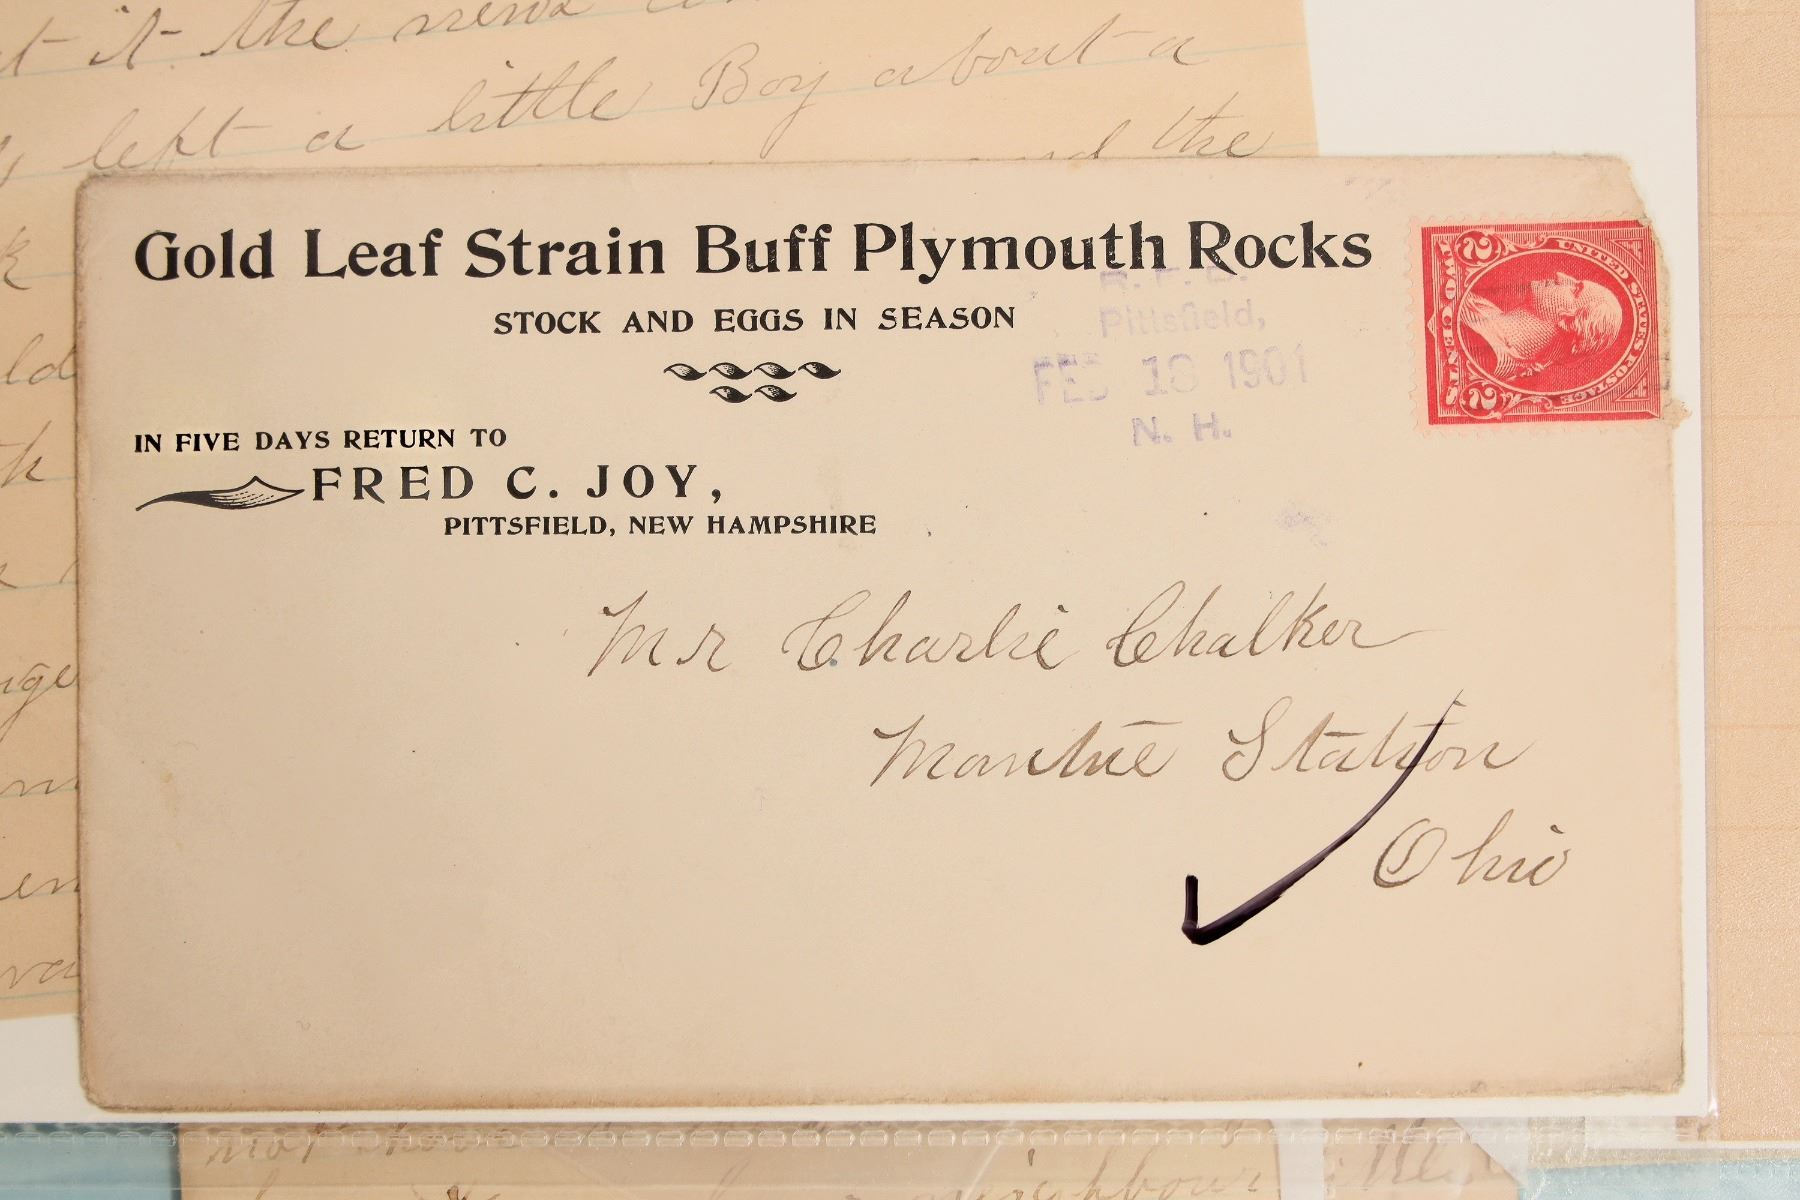 t it the news
left a little Boy about a
the
Gold Leaf Strain Buff Plymouth Rocks
STOCK AND EGGS IN SEASON
R. F. D.
Pittsfield,
FEB 18 1901
N. H.
UNITED STATES POSTAGE
2 TWO CENTS 2
IN FIVE DAYS RETURN TO
FRED C. JOY,
PITTSFIELD, NEW HAMPSHIRE
Mr Charlie Chalker
Mantue Station
Ohio
not have
neighbour